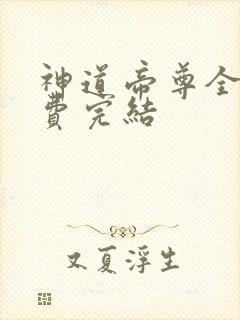 神道帝尊全
費完結
又夏浮生